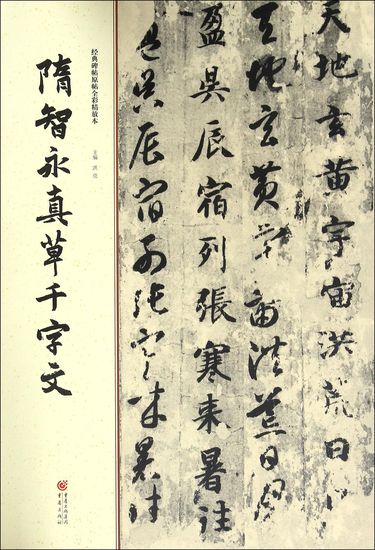 天地玄黄宇宙洪荒日月
天地玄黄宇宙洪荒日月
盈昃辰宿列張寒来暑往
盈昃辰宿列張寒来暑往
经典碑帖原帖全彩精放本
主编 洪亮
隋智永真草千字文
重庆出版集团
重庆出版社